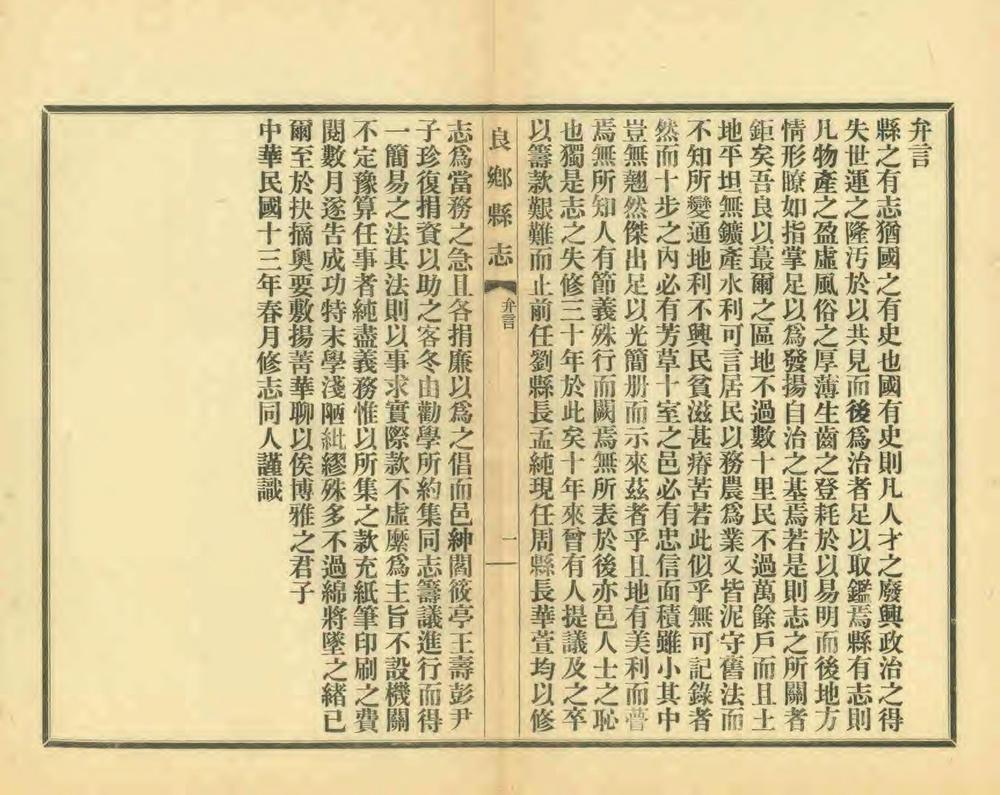 弁言
縣之有志猶國之有史也國有史則凡人才之廢興政治之得
失世運之隆汚於以共見而後爲治者足以取鑑焉縣有志則
凡物產之盈虛風俗之厚薄生齒之登耗於以易明而後地方
情形瞭如指掌足以爲發揚自治之基焉若是則志之所關者
鉅矣吾良以蕞爾之區地不過數十里民不過萬餘戶而且土
地平坦無鑛產水利可言居民以務農爲業又皆泥守舊法而
不知所變通地利不興民貧滋甚瘠苦若此似乎無可記錄者
然而十步之內必有芳草十室之邑必有忠信面積雖小其中
豈無翹然傑出足以光簡册而示來茲者乎且地有美利而瞢
焉無所知人有節義殊行而闕焉無所表於後亦邑人士之恥
也獨是志之失修三十年於此矣十年來曾有人提議及之卒
以籌款艱難而止前任劉縣長孟純現任周縣長華萱均以修
良鄉縣志
弁言
一
志爲當務之急且各捐廉以爲之倡而邑紳閻筱亭王壽彭尹
子珍復捐資以助之客冬由勸學所約集同志籌議進行而得
一簡易之法其法則以事求實際款不虛縻爲主旨不設機關
不定豫算任事者純盡義務惟以所集之款充紙筆印刷之費
閱數月遂告成功特末學淺陋紕繆殊多不過綿將墜之緒已
爾至於抉摘奧要敷揚菁華聊以俟博雅之君子
中華民國十三年春月修志同人謹識